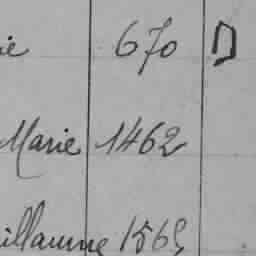 ie 670 D
Marie 1462
illaume 1565